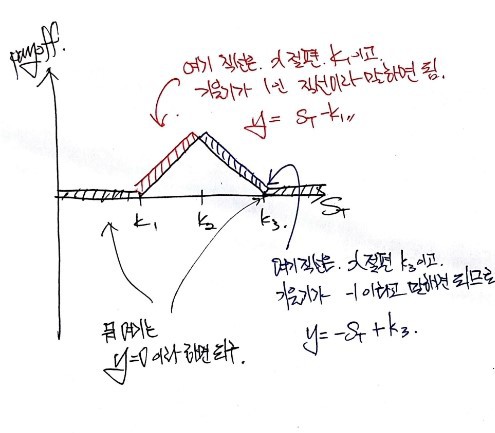 payoff.
여기 직선은. x절편 k₁이고.
기울기가 1인 직선이라 말하면 됨.
y = S_T - k₁,,
k₁ k₂ k₃. S_T
여기 직선은. x절편 k₃이고.
기울기가 -1이라고 말해면 되므로
y = -S_T + k₃.
여기는
y=0이라 하면 되구.